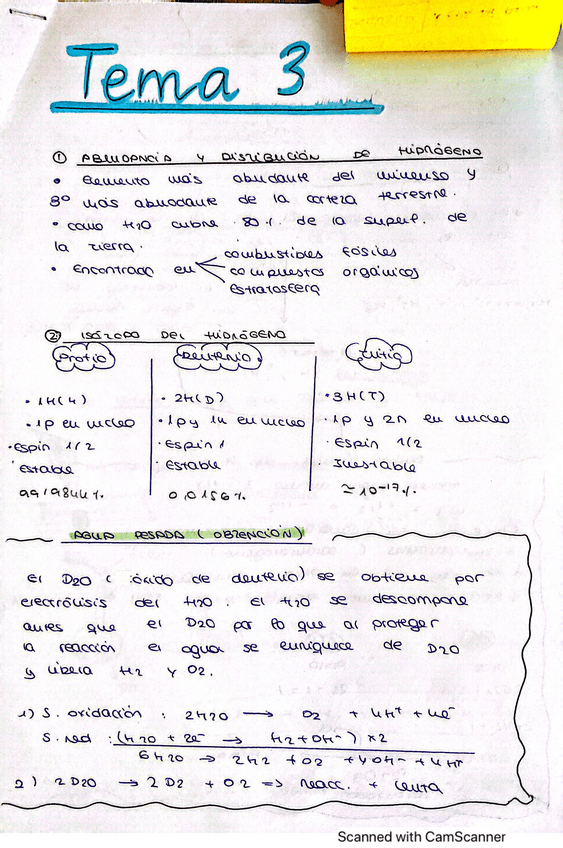 Tema 3
① ABUNDANCIA Y DISTRIBUCIÓN DE HIDRÓGENO
• Elemento más abundante del universo y
3º más abundante de la corteza terrestre.
• como H2O cubre 80% de la superf. de
la tierra.
• Encontrado en
combustibles fósiles
compuestos orgánicos
estratosfera
② ISÓTOPO DEL HIDRÓGENO
Protio
Deuterio
Tritio
• 1H(H)
• 2H(D)
• 3H(T)
• 1p en nucleo
• 1p y 1n en nucleo
• 1p y 2n en nucleo
• Espin 1/2
• Espin 1
• Espin 1/2
• Estable
• Estable
• Inestable
99,9844%
0,0156%
≃ 10-17%
AGUA PESADA (OBTENCIÓN)
El D2O (óxido de deuterio) se obtiene por
electrólisis del H2O. El H2O se descompone
antes que el D2O por lo que al proteger
la reacción el agua se enriquece de D2O
y libera H2 y O2.
1) S. oxidación : 2H2O → O2 + 4H+ + 4e-
S. red : (H2O + 2e- → H2 + OH-) x2
6H2O → 2H2 + O2 + 4OH- + 4H+
2) 2D2O → 2D2 + O2 => reacc. + lenta
Scanned with CamScanner